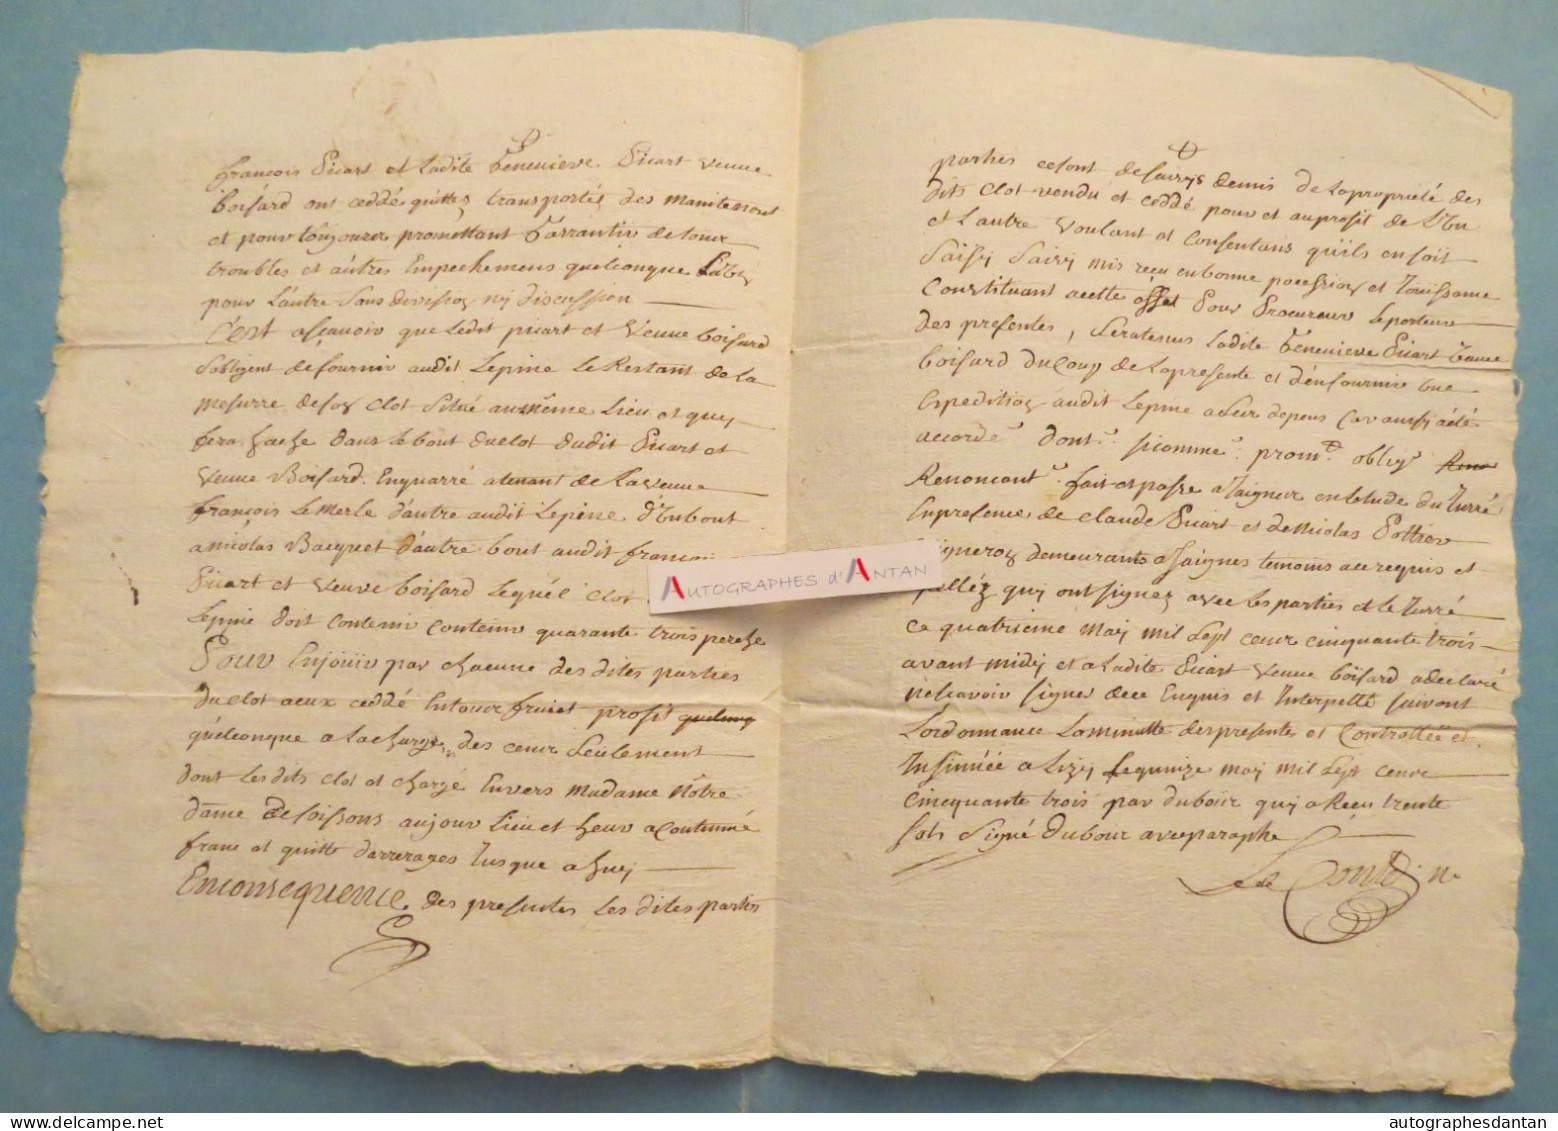 françois Picart et Ladite Genevieve Picart veuve
boisard ont ceddé quittez transportéz des maintenant
et pour toujourer promettant Garrantir de tour
troubles et aûtres Empechemens quelconque
pour L'autre Sans division ny discussion
C'est asçavoir que Ledit picart et Veuve boisard
S'obligent de fournir audit Lepine Le Restant de La
mesurre de son Clot Situé au même Lieu et qui
Sera dans le bout du clot dudit Picart et
Veuve Boisard. Enquarré atenant de La veuve
françois Le Merle d'autre audit Lepine d'Un bout
a nicolas Bacquet d'autre bout audit
Picart et Veuve boisard Lequél Clot
Lepine doit Contenir quarante trois perche
Pour Enjoüir par chacune des dites parties
du clot aeux ceddé Entour fruiet profit quelconq
quélconque a La charge des Seulement
dont Les dits Clot et chargé Envers Madame Nôtre
dame de soissons aujour Lieu et heur acoutumé
franc et quitte d'arrerages Jusque a huy
Enconsequence des presentes Les dites parties
parties ce sont demis de La propriété des
dits Clot vendu et ceddé pour et au profit de L'Un
et L'autre voulant et Consentans quils en soit
Saisy mis reçu en bonne possession et Jouissance
Constituant a cette effet Pour Procureur Le porteur
des presentes, Sera tenus Ladite Genevieve Picart Veuve
boisard du Coup de La presente et d'en fournir une
Expedition audit Lepine a Leur depens Car aussy a été
accordé dont promt oblig
Renoncant fait et passe a Jaignes en Letude du Juré
En presence de Claude Picart et de Nicolas Pottier
Vigneron demeurants a Jaignes temoins au requis et
quy ont signez avec Les parties et le Juré
ce quatrieme may mil Sept cent cinquante trois
avant midy et a Ladite Picart Veuve boisard a declaré
ne sçavoir signer de ce Enquis et Interpellé suivant
Lordonnance La minutte des presentes et Controllée et
Insinuée a Lizy Le quinze may mil Sept cent
cinquante trois par dubour quy a Reçu trente
sols Signé Dubour avec paraphe
AUTOGRAPHES d'ANTAN
autographesdantan